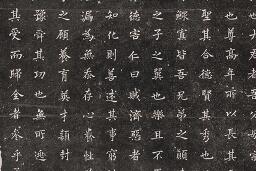 也大君者吾父母宗
也尊高年所以長其
聖其合德賢其秀也
鰥寡皆吾兄弟之顛
之子之翼也樂且不
德害仁曰賊濟惡者
知化則善述其事窮
漏為無忝存心養性
之顧養育英才穎封
豫舜其功也無所逃
其受而歸全者參乎